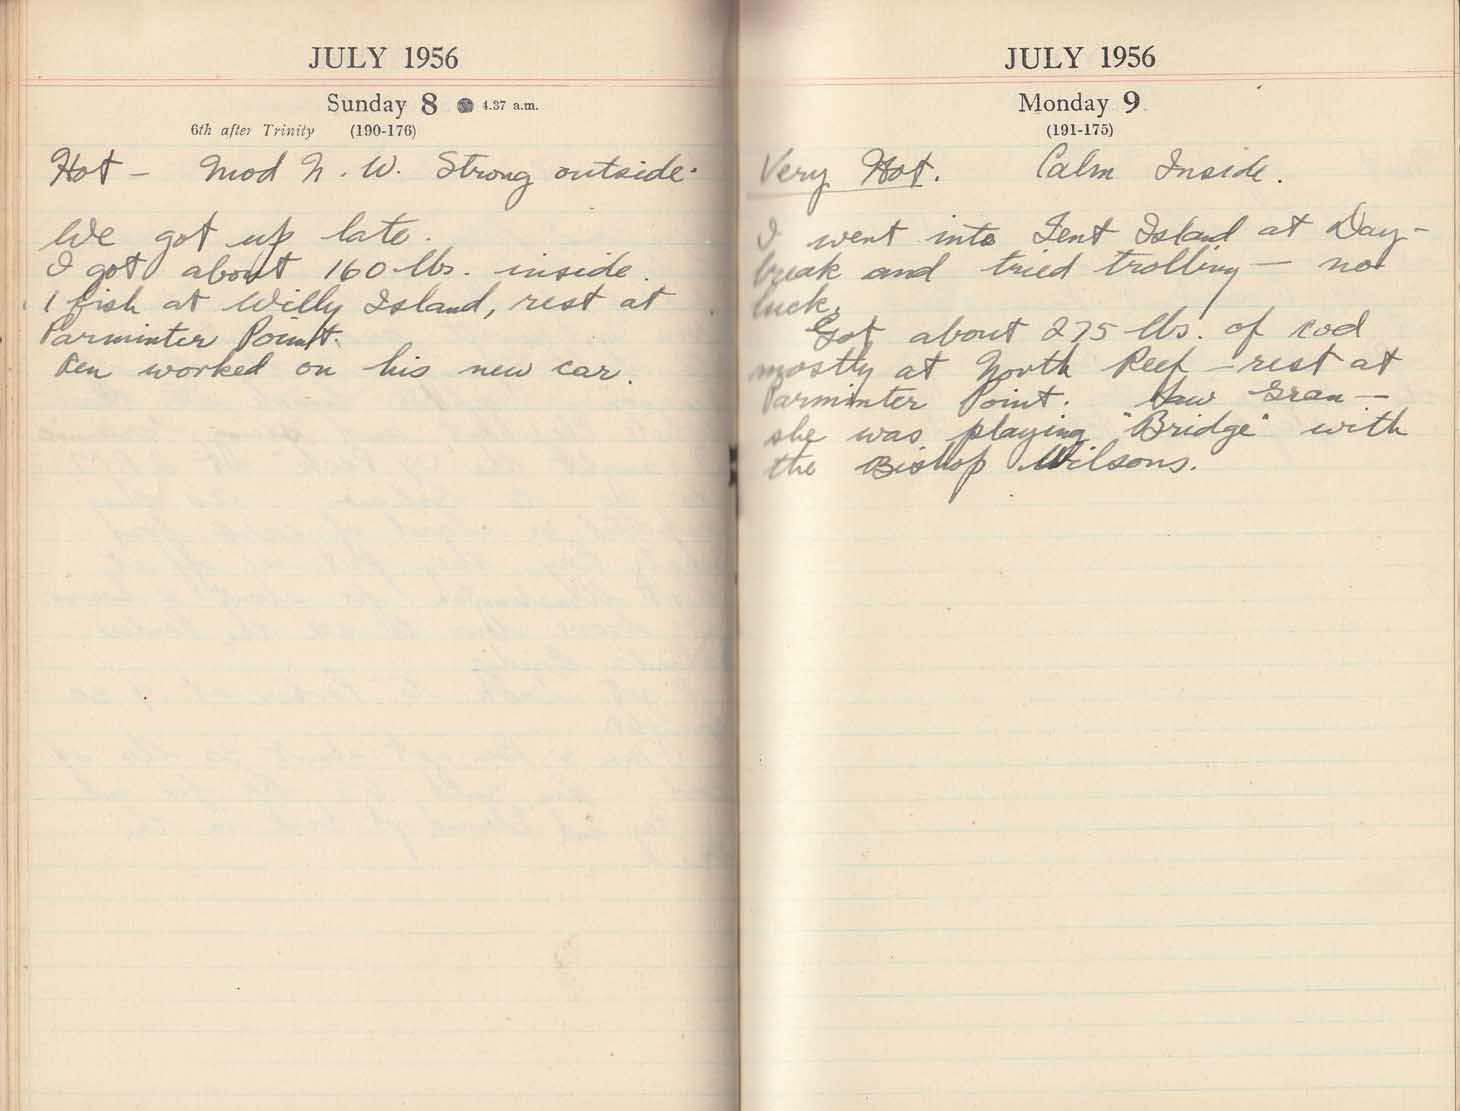 JULY 1956
Sunday 8 4.37 a.m.
6th after Trinity (190-176)
Hot - Mod N. W. Strong outside.
We got up late.
I got about 160 lbs. inside.
1 fish at Willy Island, rest at
Parminter Point.
Ken worked on his new car.
JULY 1956
Monday 9
(191-175)
Very Hot. Calm Inside.
I went into Tent Island at Day-
break and tried trolling - no
luck.
Got about 275 lbs. of cod
mostly at North Reef - rest at
Parminter Point. Saw Gran -
she was playing "Bridge" with
the Bishop Wilsons.